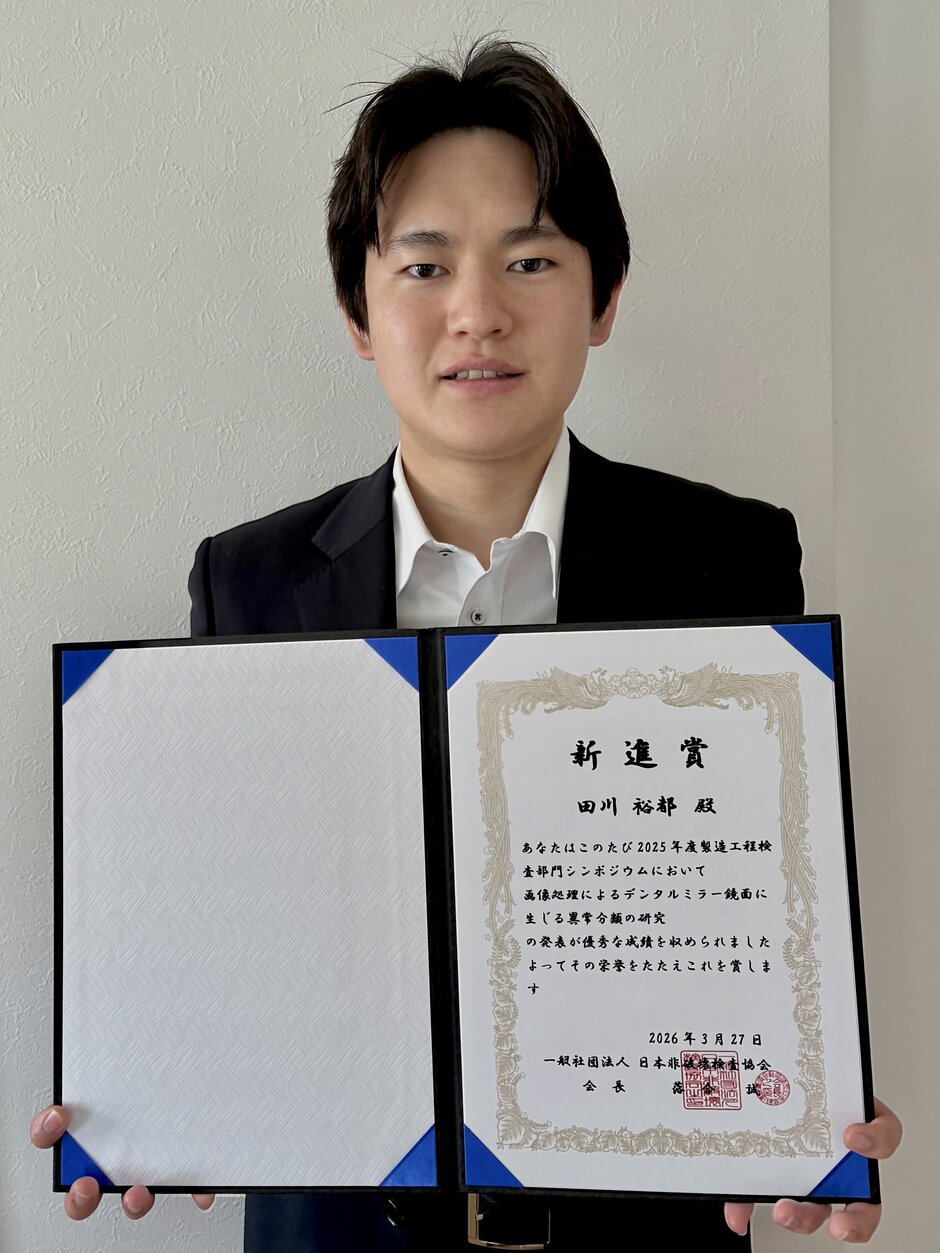 新進賞
田川 裕都 殿
あなたはこのたび2025年度製造工程検
査部門シンポジウムにおいて
画像処理によるデンタルミラー鏡面に
生じる異常分類の研究
の発表が優秀な成績を収められました
よってその栄誉をたたえこれを賞しま
す
2026年3月27日
一般社団法人 日本非破壊検査協会
会長 落合 誠